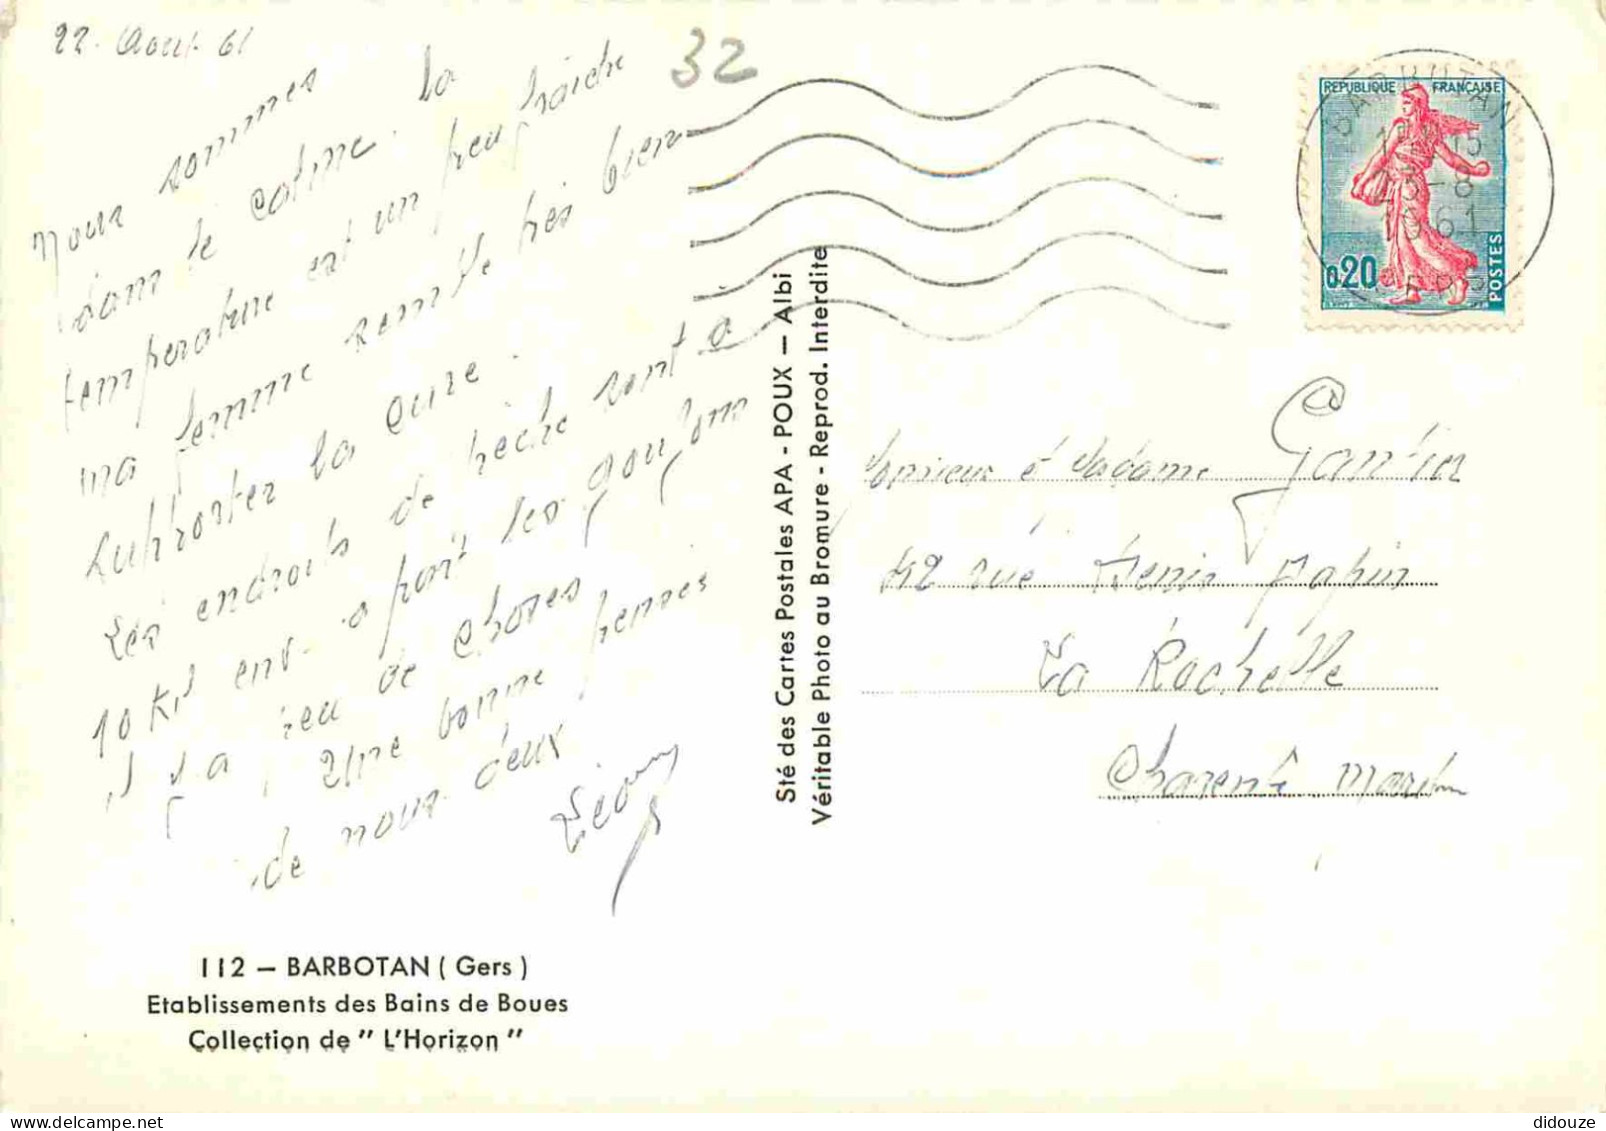 22. Août 61
32
Nous sommes
dans le calme. la
température est un peu fraîche
ma femme semble très bien
supporter la cure.
Les endroits de pêche sont à
10 Kil env. a part les goujons
il y a peu de choses
Une bonne pensée
de nous deux
112 – BARBOTAN ( Gers )
Etablissements des Bains de Boues
Collection de " L'Horizon "
Sté des Cartes Postales APA - POUX – Albi
Véritable Photo au Bromure - Reprod. Interdite
REPUBLIQUE FRANÇAISE
0,20
POSTES
BARBOTAN
23-8
1961
GERS
Monsieur et Madame Gantier
42 rue Denis Papin
La Rochelle
Charente Maritime
didouze